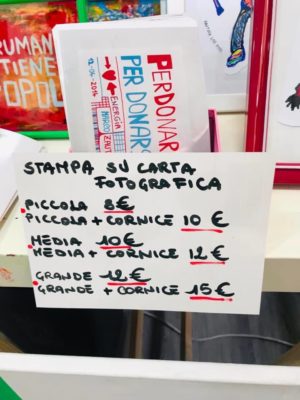 RUMAN
TIENE
POPOL
PERDONAR
PER DONARC
ENERGIA
STAMPA SU CARTA
FOTOGRAFICA
PICCOLA 8€
PICCOLA + CORNICE 10 €
MEDIA 10€
MEDIA + CORNICE 12€
GRANDE 12€
GRANDE + CORNICE 15€